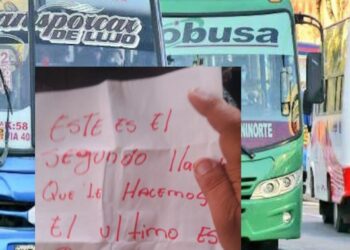 ransporcar
DE LUJO
obusa
K:58
IA 40
NINORTE
ESTE ES El
segundo lla
QUE lE HACEMOS
El ultimo ES